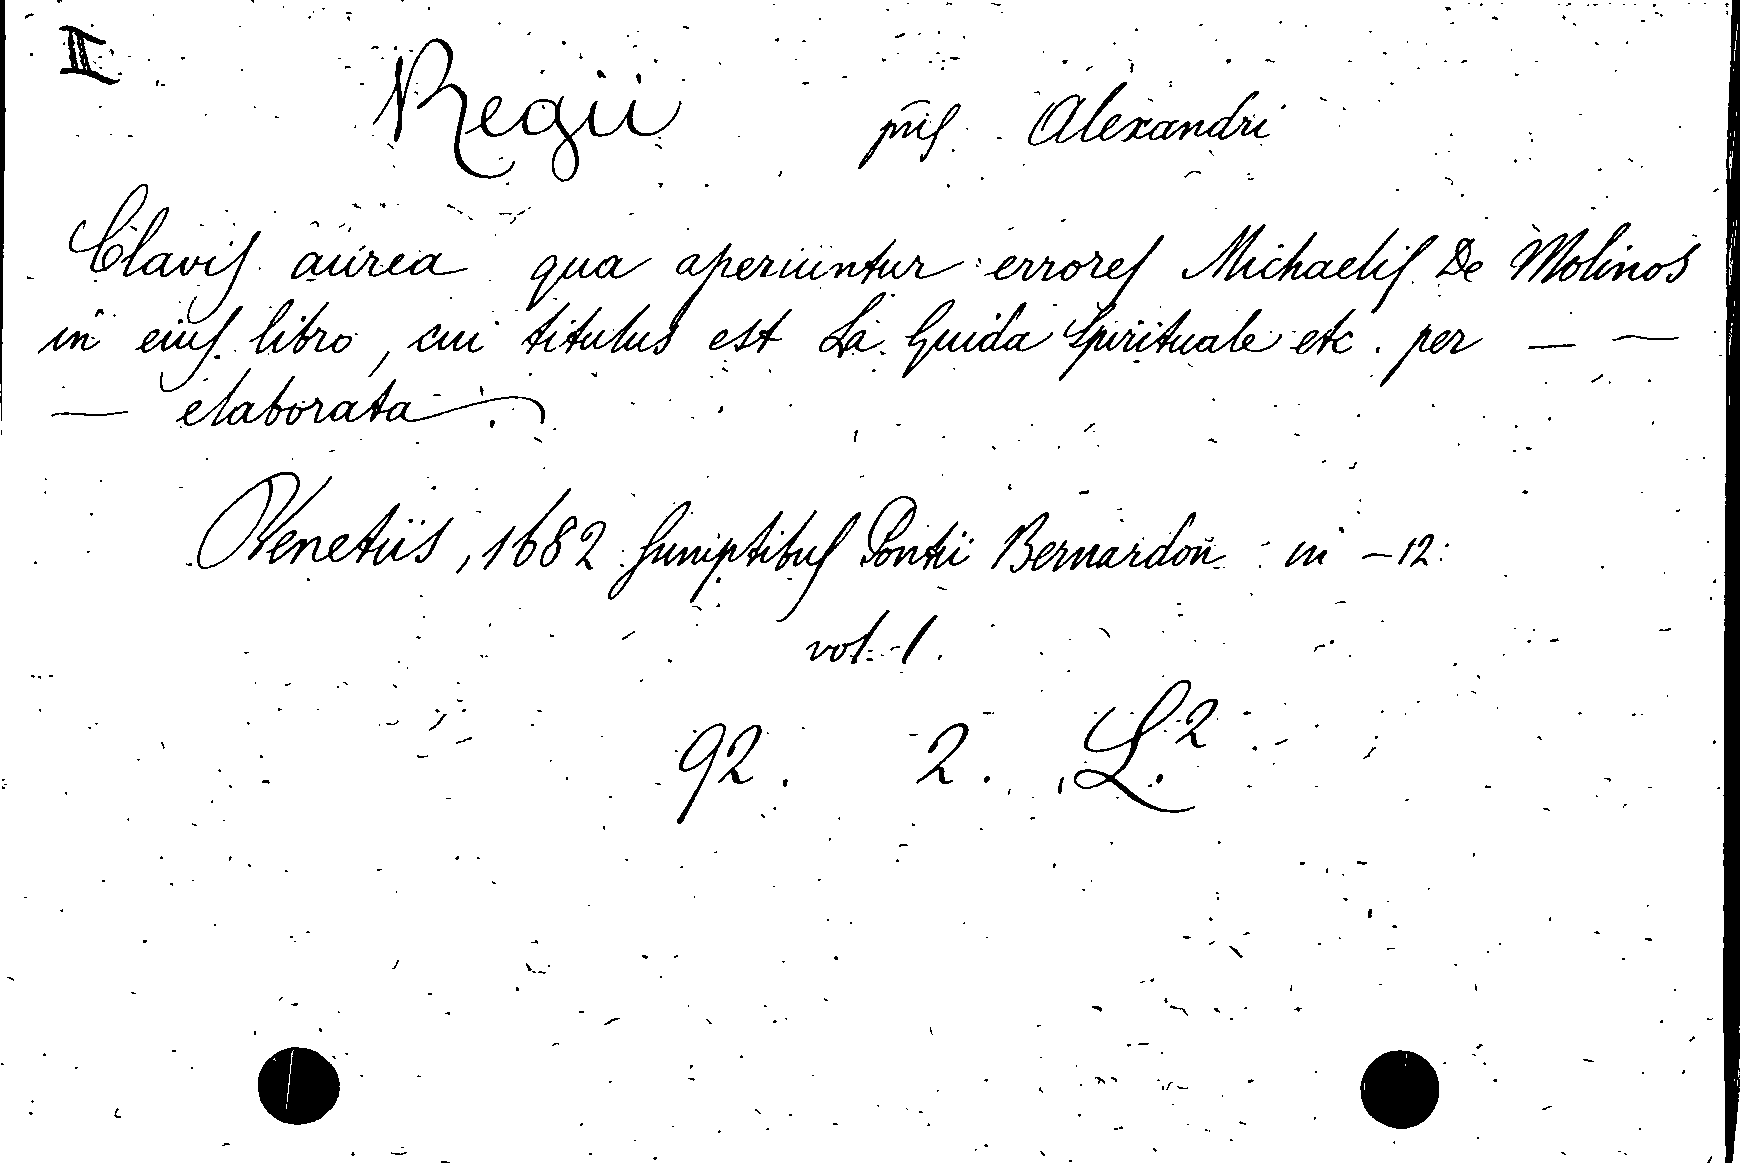 II
Regii pris Alexandri
Clavis aurea qua aperiuntur errores Michaelis De Molinos
in eius libro, cui titulus est La Guida Spirituale etc. per — —
— elaborata.
Venetiis, 1682 sumptibus Pontii Bernardon in -12:
vol. 1.
92. 2. L.2